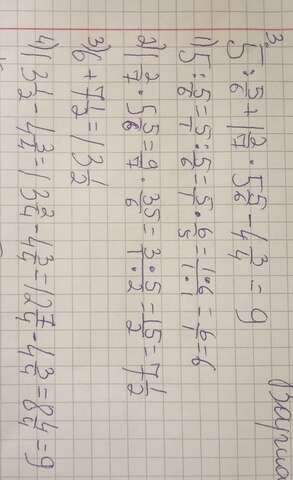 Вариа
3.
5 : 5/6 + 1 2/7 · 5 5/6 - 4 3/4 = 9
1) 5 : 5/6 = 5/1 : 5/6 = 5/1 · 6/5 = 1·6/1·1 = 6/1 = 6
2) 1 2/7 · 5 5/6 = 9/7 · 35/6 = 3·5/1·2 = 15/2 = 7 1/2
3) 6 + 7 1/2 = 13 1/2
4) 13 1/2 - 4 3/4 = 13 2/4 - 4 3/4 = 12 7/4 - 4 3/4 = 8 4/4 = 9